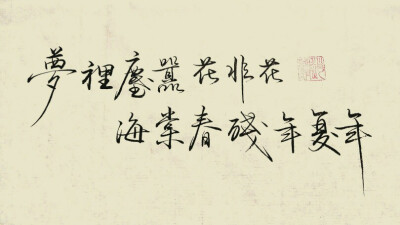 夢裡塵囂花非花
海棠春殘年復年